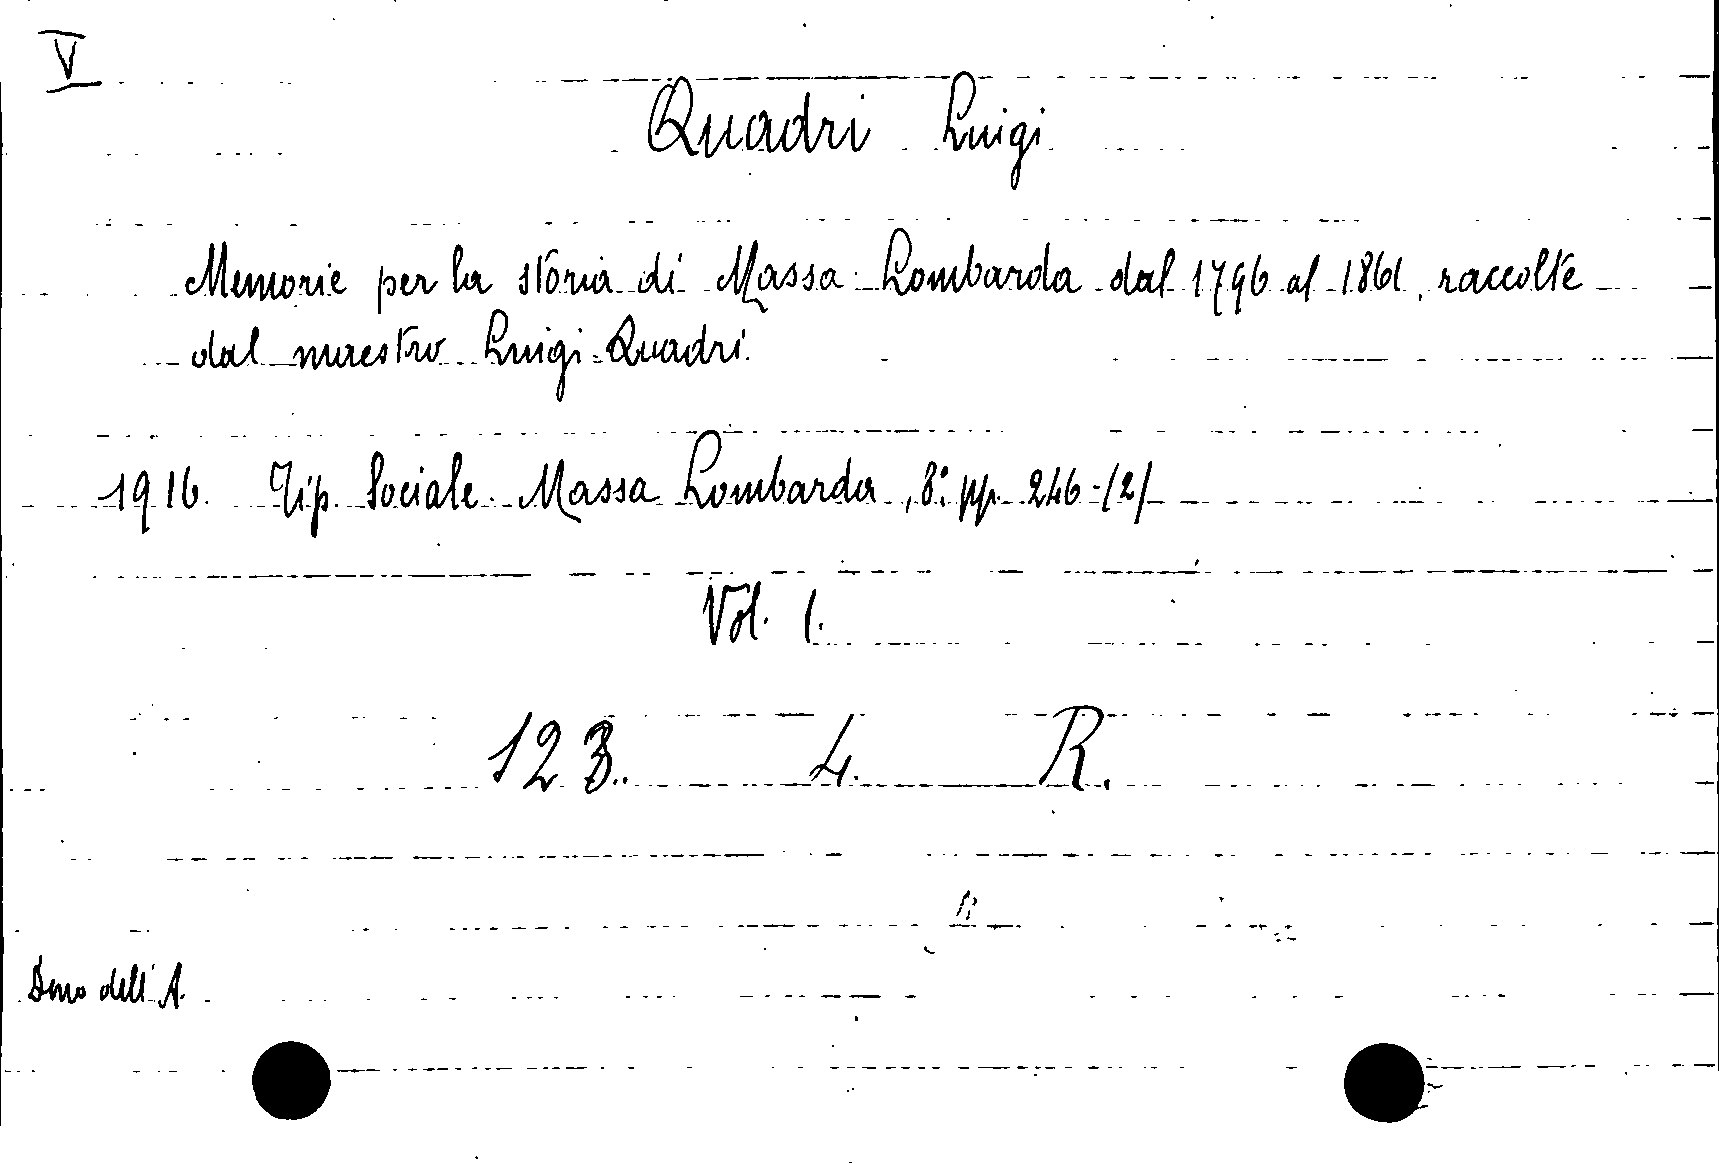 V
Quadri Luigi
Memorie per la storia di Massa Lombarda dal 1796 al 1861, raccolte
dal maestro Luigi Quadri.
1916. Tip. Sociale. Massa Lombarda, 8° pp. 246-(2)
Vol. 1.
123. 4. R.
Dono dell'A.